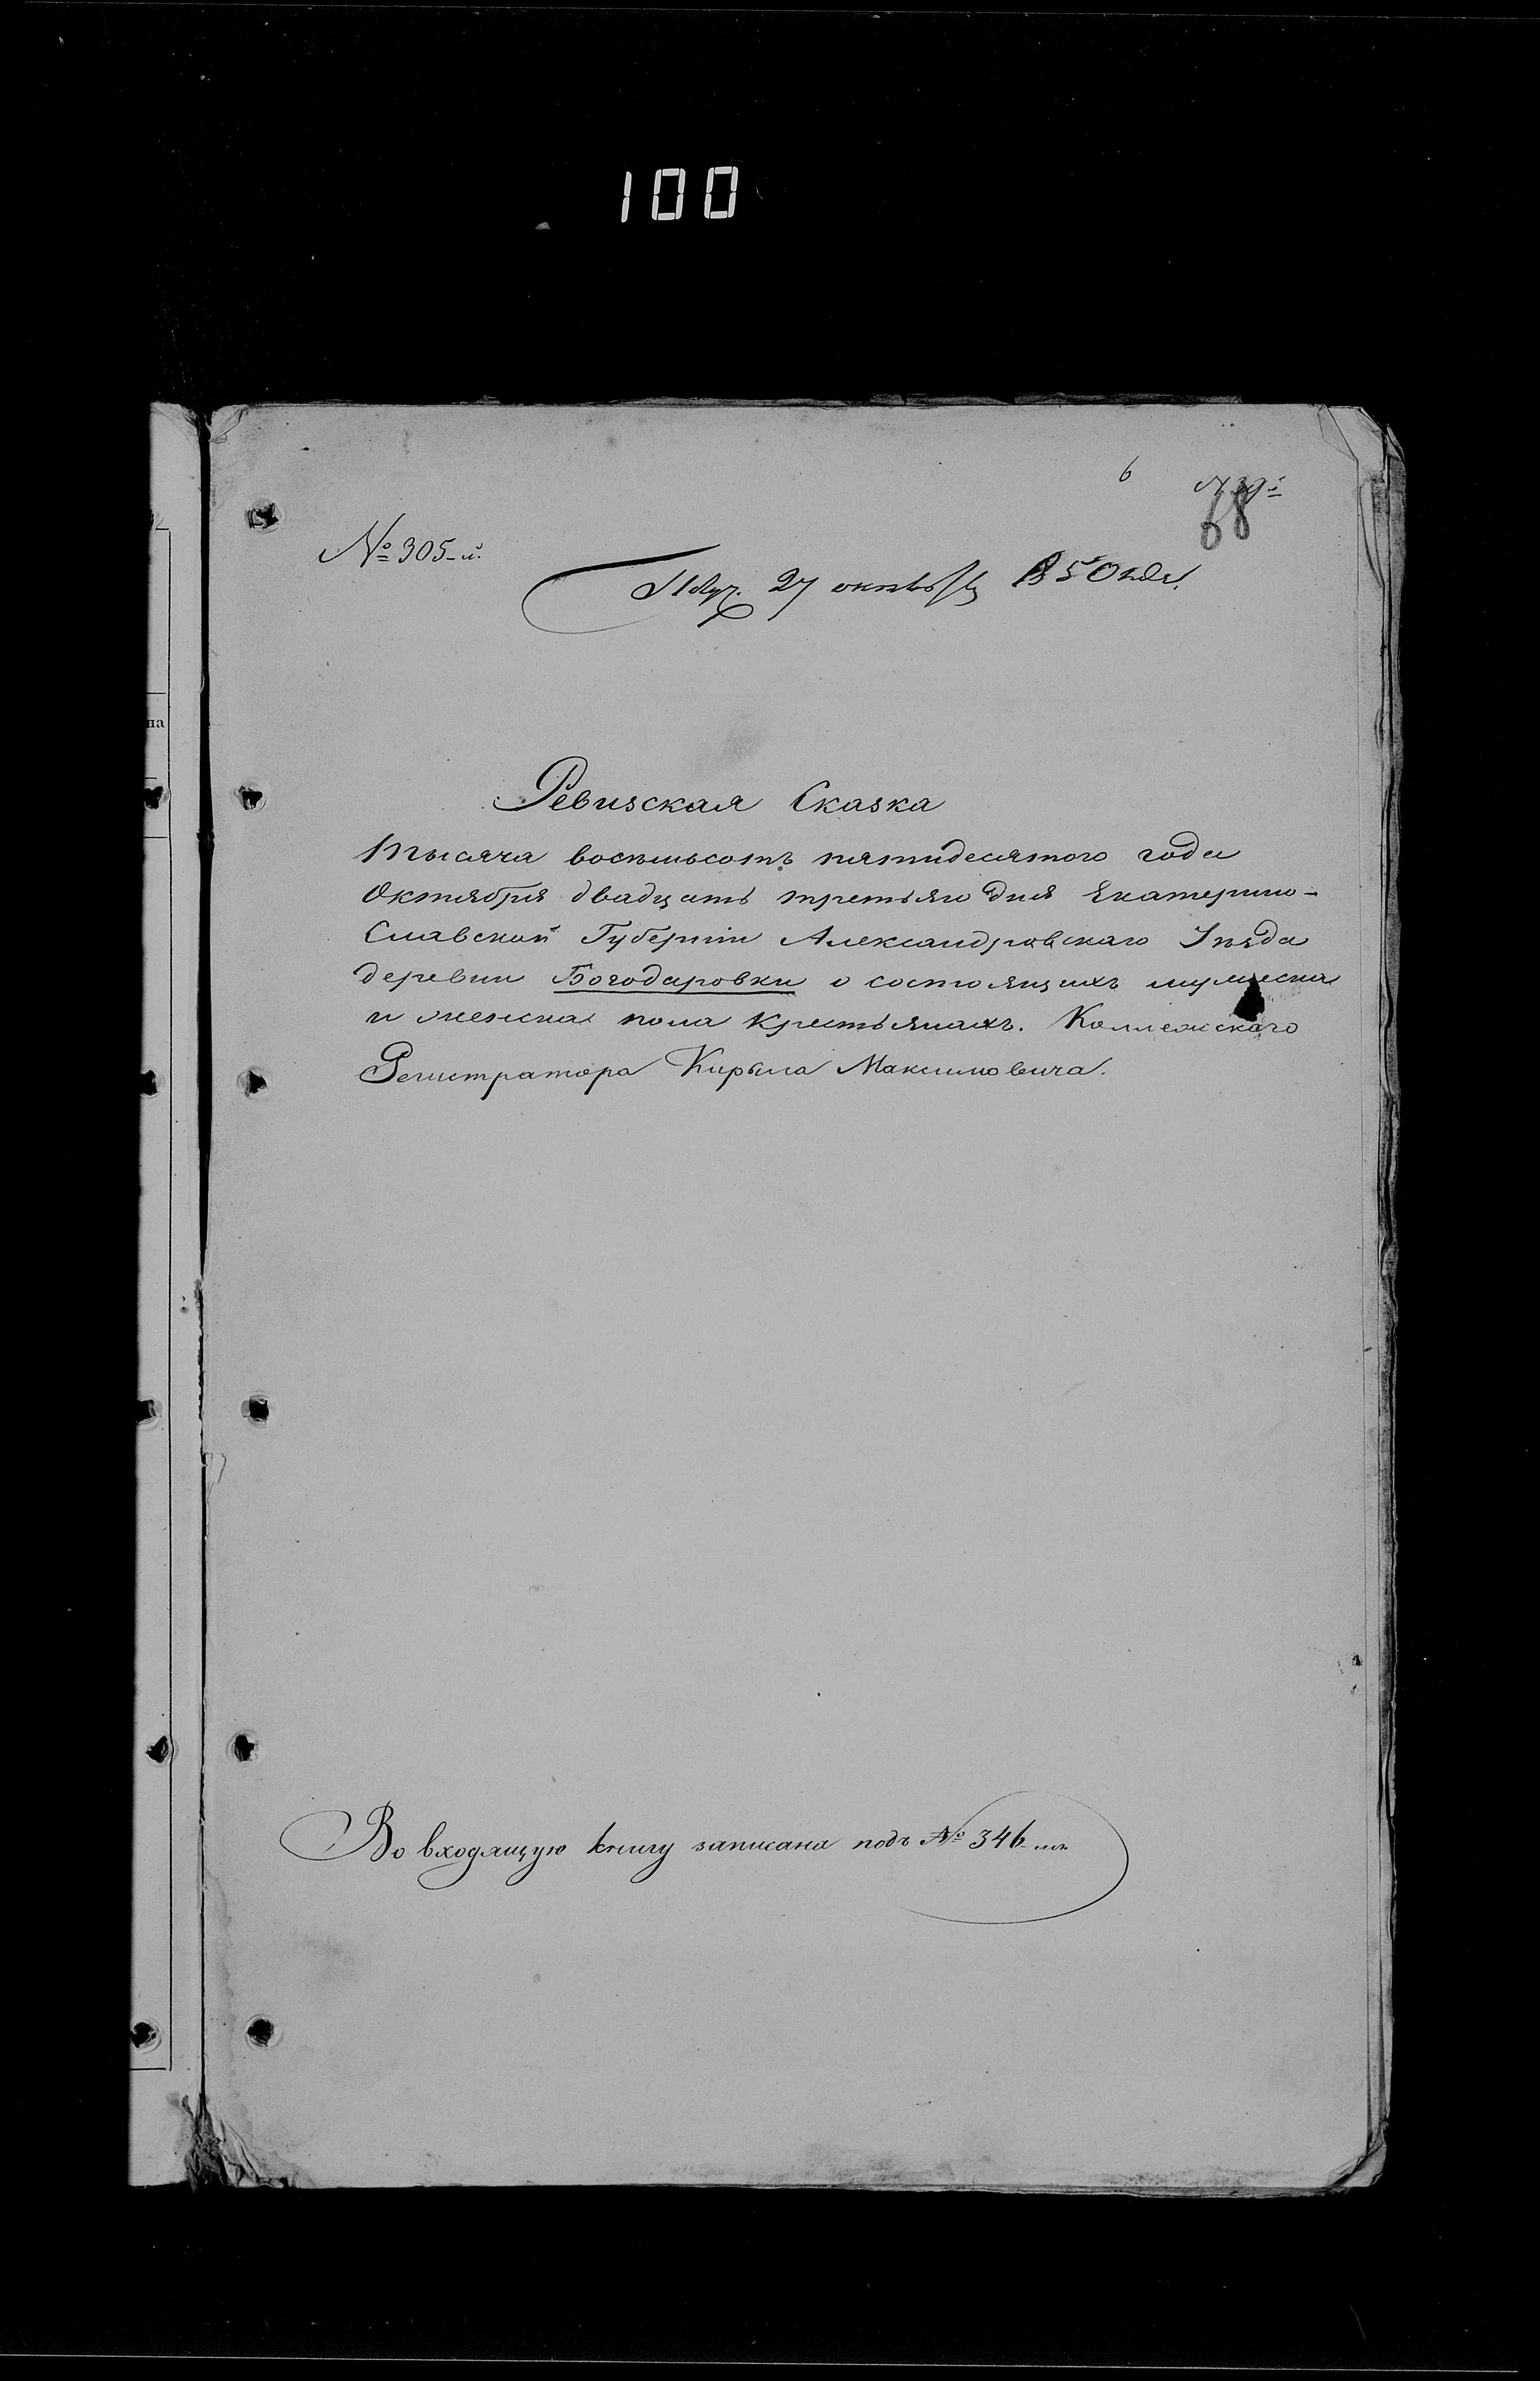 100
6
№ 39й
68
№ 305-й.
Получ. 27 октября 1850 года.
Ревизская Сказка
Тысяча восемьсотъ пятидесятого года
Октября двадцать третьяго дня Екатерино-
Славской Губерніи Александровскаго Уѣзда
деревни Богодаровки о состоящихъ мужеска
и женска пола крестьянахъ. Коллежскаго
Регистратора Кирыла Максимовича.
на
Во входящую книгу записана подъ № 346-мъ